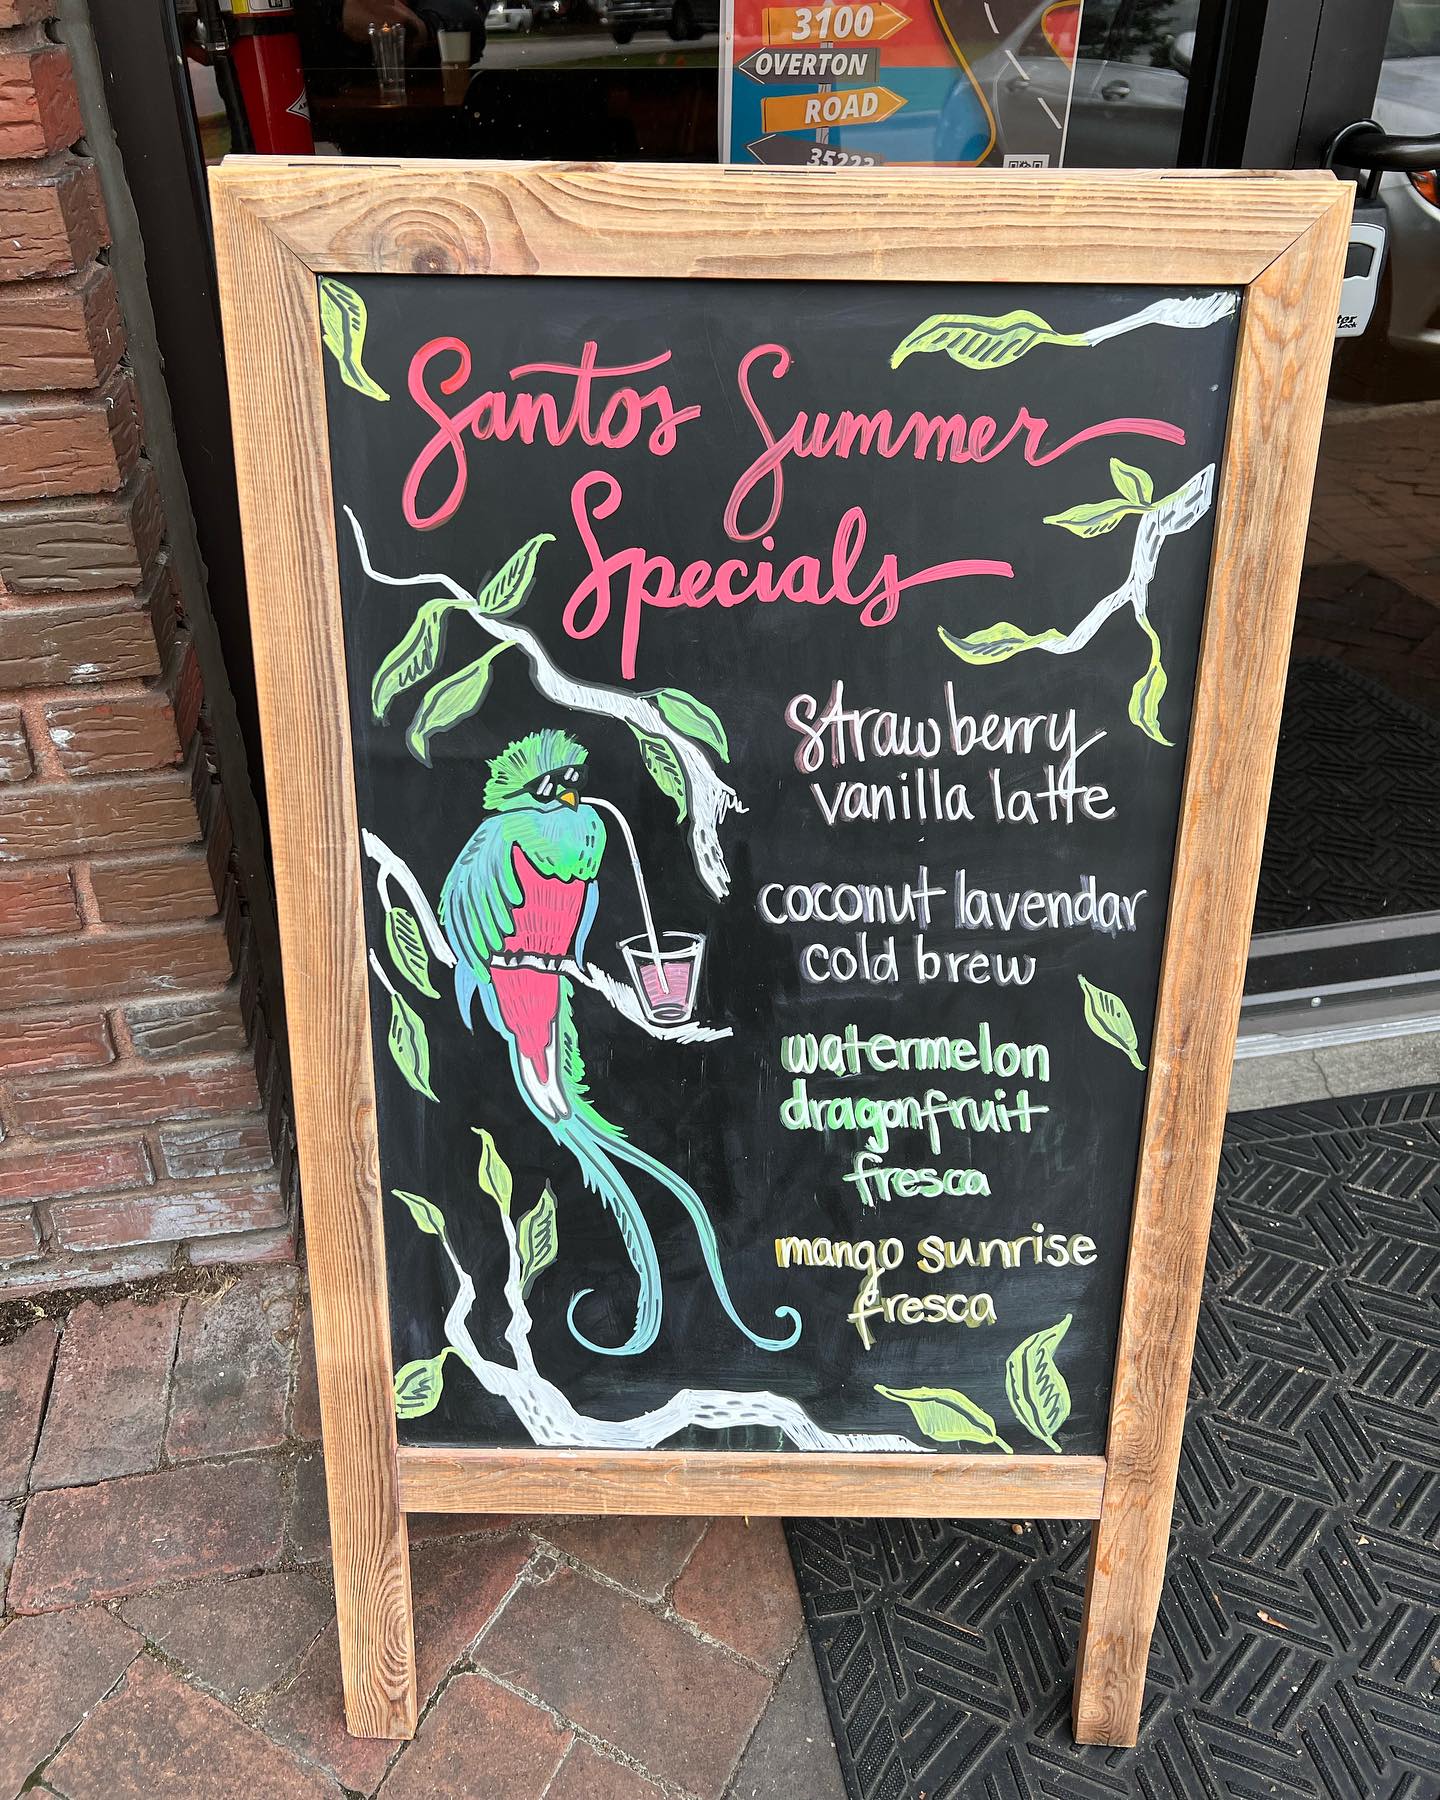 3100
OVERTON
ROAD
35223
Santos Summer
Specials
strawberry
vanilla latte
coconut lavendar
cold brew
watermelon
dragonfruit
fresca
mango sunrise
fresca